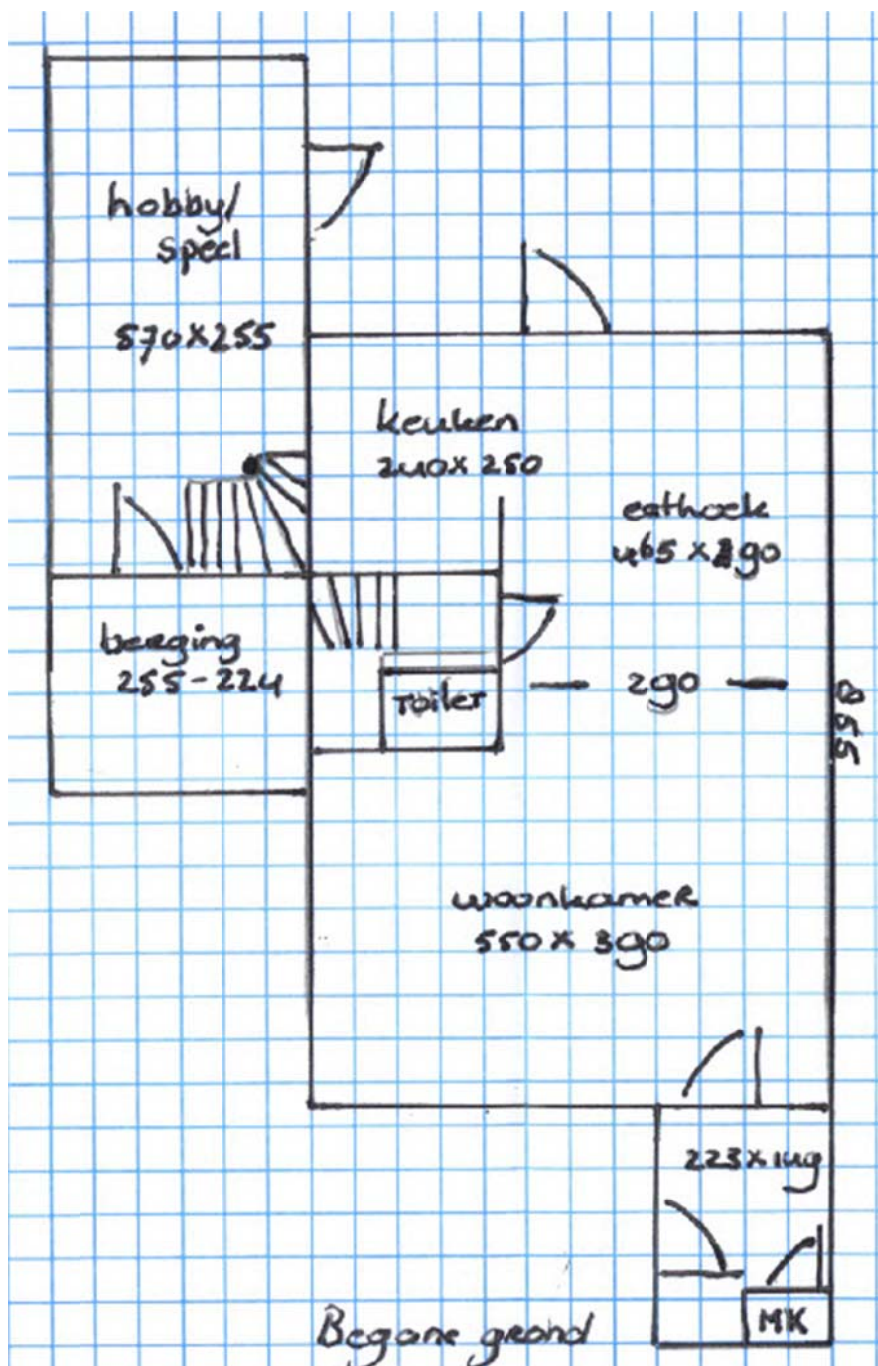 hobby/
speel
570x255
keuken
240x250
eethoek
465x290
berging
255-224
Toilet
290
855
woonkamer
550x390
223x149
MK
Begane grond